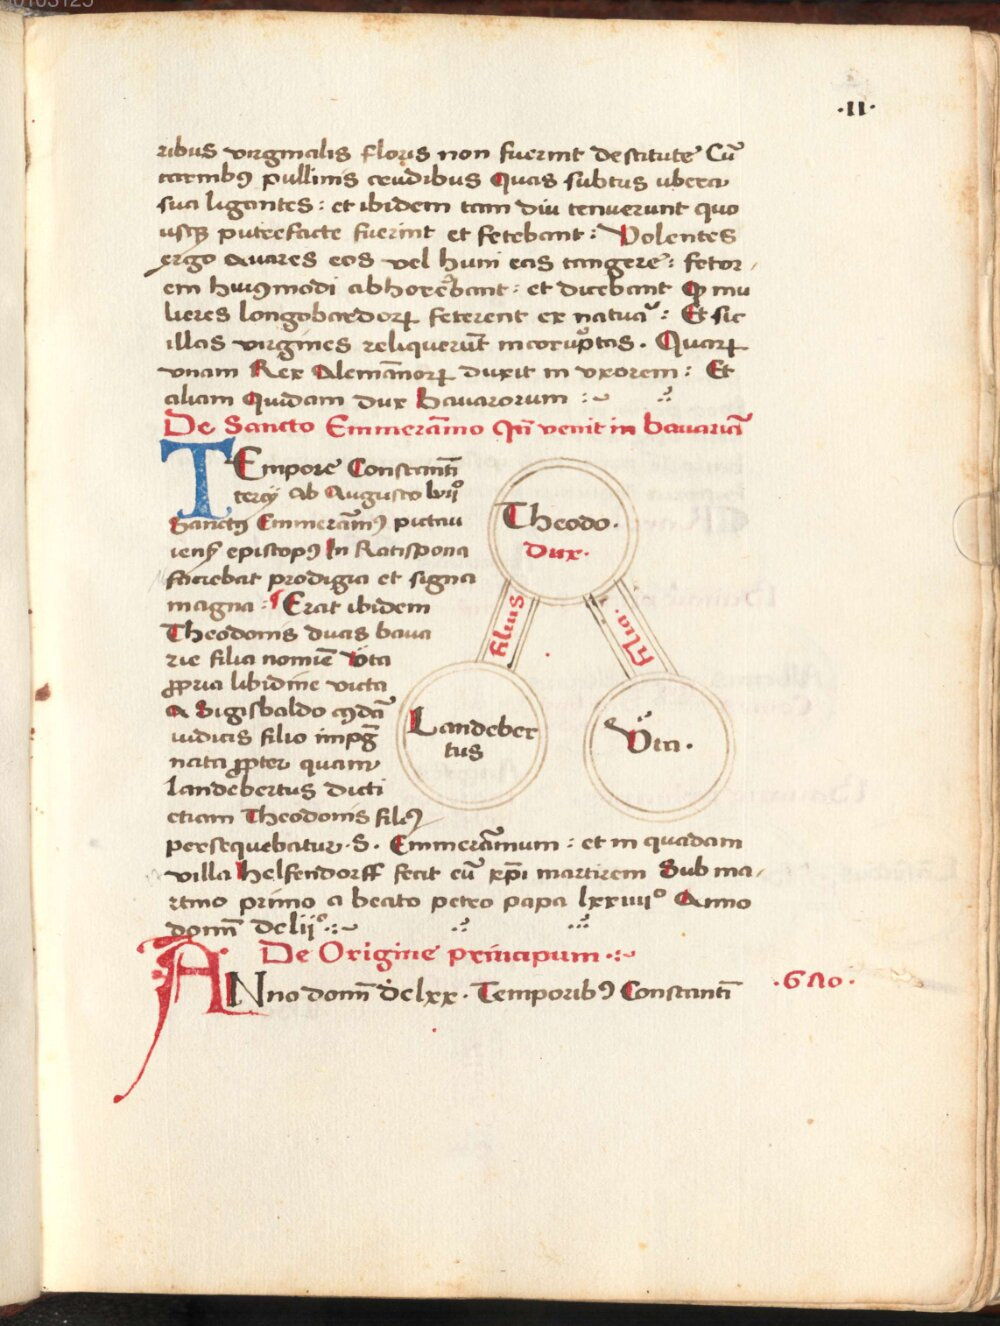 0103125
·II·
ribus virginalis floris non fuerint destitute Cū
carnibꝯ pullinis crudibus Quas subtus ubera
sua ligantes : et ibidem tam diu tenuerunt quo
usqꝫ putrefacte fuerint et fetebant : Volentes
ergo Avares eos vel huni eas tangere : fetor
em huiꝯmodi abhorrebant : et dicebant ꝙ mu
lieres longobardoꝝ feterent ex natura : Et sic
illas virgines reliquerūt incoruptas . Quaꝝ
unam Rex Alemānoꝝ duxit in uxorem : Et
aliam Quidam dux bavarorum :~
De Sancto Emmerāmo venit in bavariā
TEmpore Constantī
tercij ab Augusto lvijº
Sanctꝯ Emmerāmꝯ pictavi
iensˀ episcopꝯ In Ratispona
faciebat prodigia et signa
magna : ¶ Erat ibidem
Theodonis ducis bava
rie filia nomīe Vta
ꝓpria libidine victa
A Sigisbaldo cꝯdā
iudicis filio impḡ
nata ꝓpter quam
landebertus dicti
etiam Theodonis filiꝯ
persequebatur . S . Emmerāmum : et in quadam
villa helfendorff fecit eū xp̄i martirem Sub ma
rtino primo a beato petro papa lxxiiiiº Anno
domī dclijº :~
Theodo .
Dux .
filius
filia .
Landeber
tus
Vta .
De Origine principum :~
ANno domī dclxx . Temporibꝯ Constantī
· 670 ·